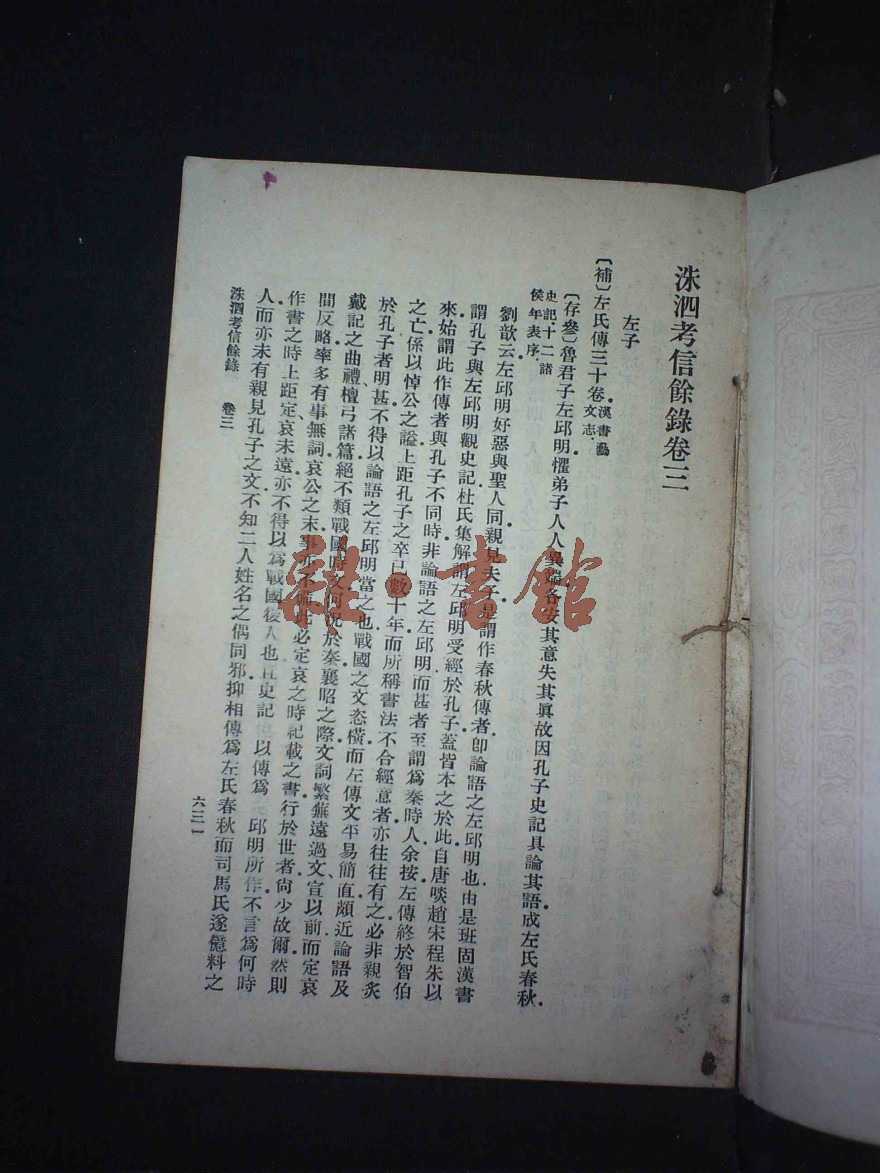 洙泗考信餘錄卷三
左子
〔補〕左氏傳三十卷漢書藝文志.
〔存參〕魯君子左邱明懼弟子人人異端各安其意失其眞故因孔子史記具論其語成左氏春秋.
史記十二諸侯年表序.
劉歆云左邱明好惡與聖人同親見夫子是謂作春秋傳者卽論語之左邱明也由是班固漢書
謂孔子與左邱明觀史記杜氏集解謂左邱明受經於孔子蓋皆本之於此自唐啖趙宋程朱以
來始謂此作傳者與孔子不同時非論語之左邱明而甚者至謂爲秦時人余按左傳終於智伯
之亡係以悼公之謚上距孔子之卒已數十年而所稱書法不合經意者亦往往有之必非親炙
於孔子者明甚不得以論語之左邱明當之也戰國之文恣橫而左傳文平易簡直頗近論語及
戴記之曲禮檀弓諸篇絕不類戰國時文何況於秦襄昭之際文詞繁蕪遠過文宣以前而定哀
間反略率多有事無詞哀公之末事亦不備此必定哀之時紀載之書行於世者尙少故爾然則
作書之時上距定哀未遠亦不得以爲戰國後人也且史記 以傳爲 邱明所作不言爲何時
人而亦未有親見孔子之文不知二人姓名之偶同邪抑相傳爲左氏春秋而司馬氏遂億料之
洙泗考信餘錄 卷三
六三一
雜·書館